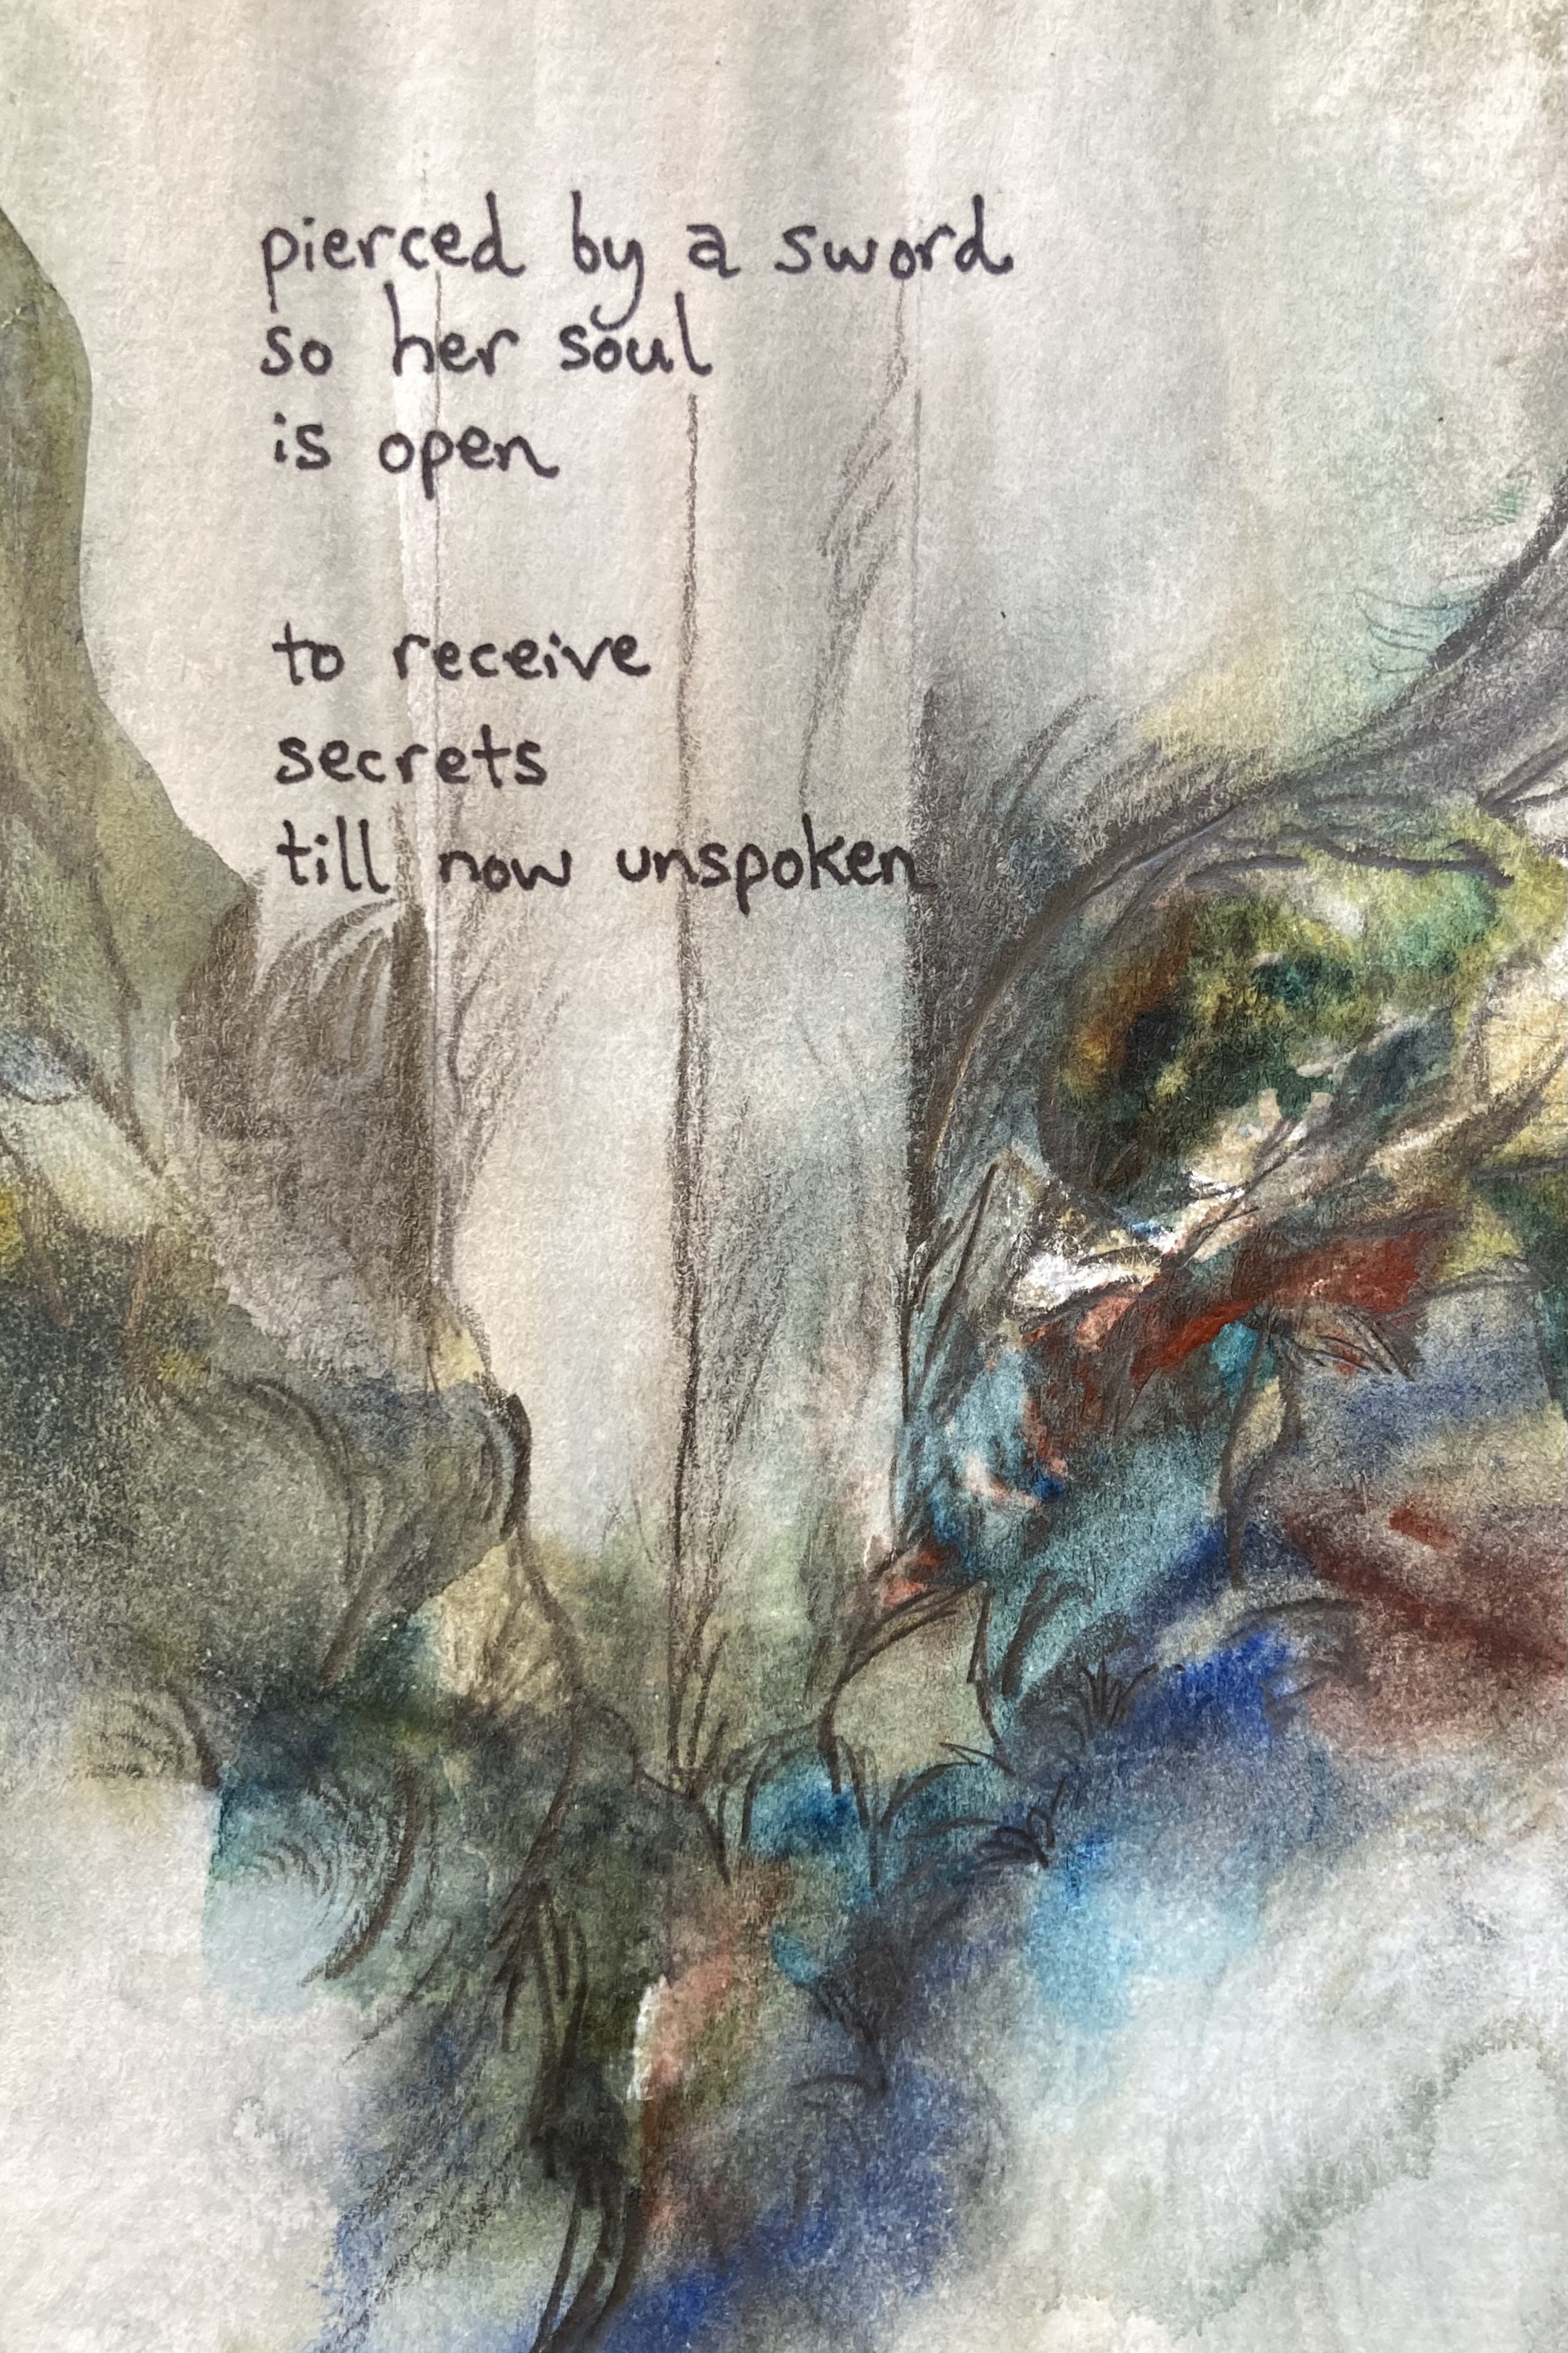 pierced by a sword
so her soul
is open
to receive
secrets
till now unspoken